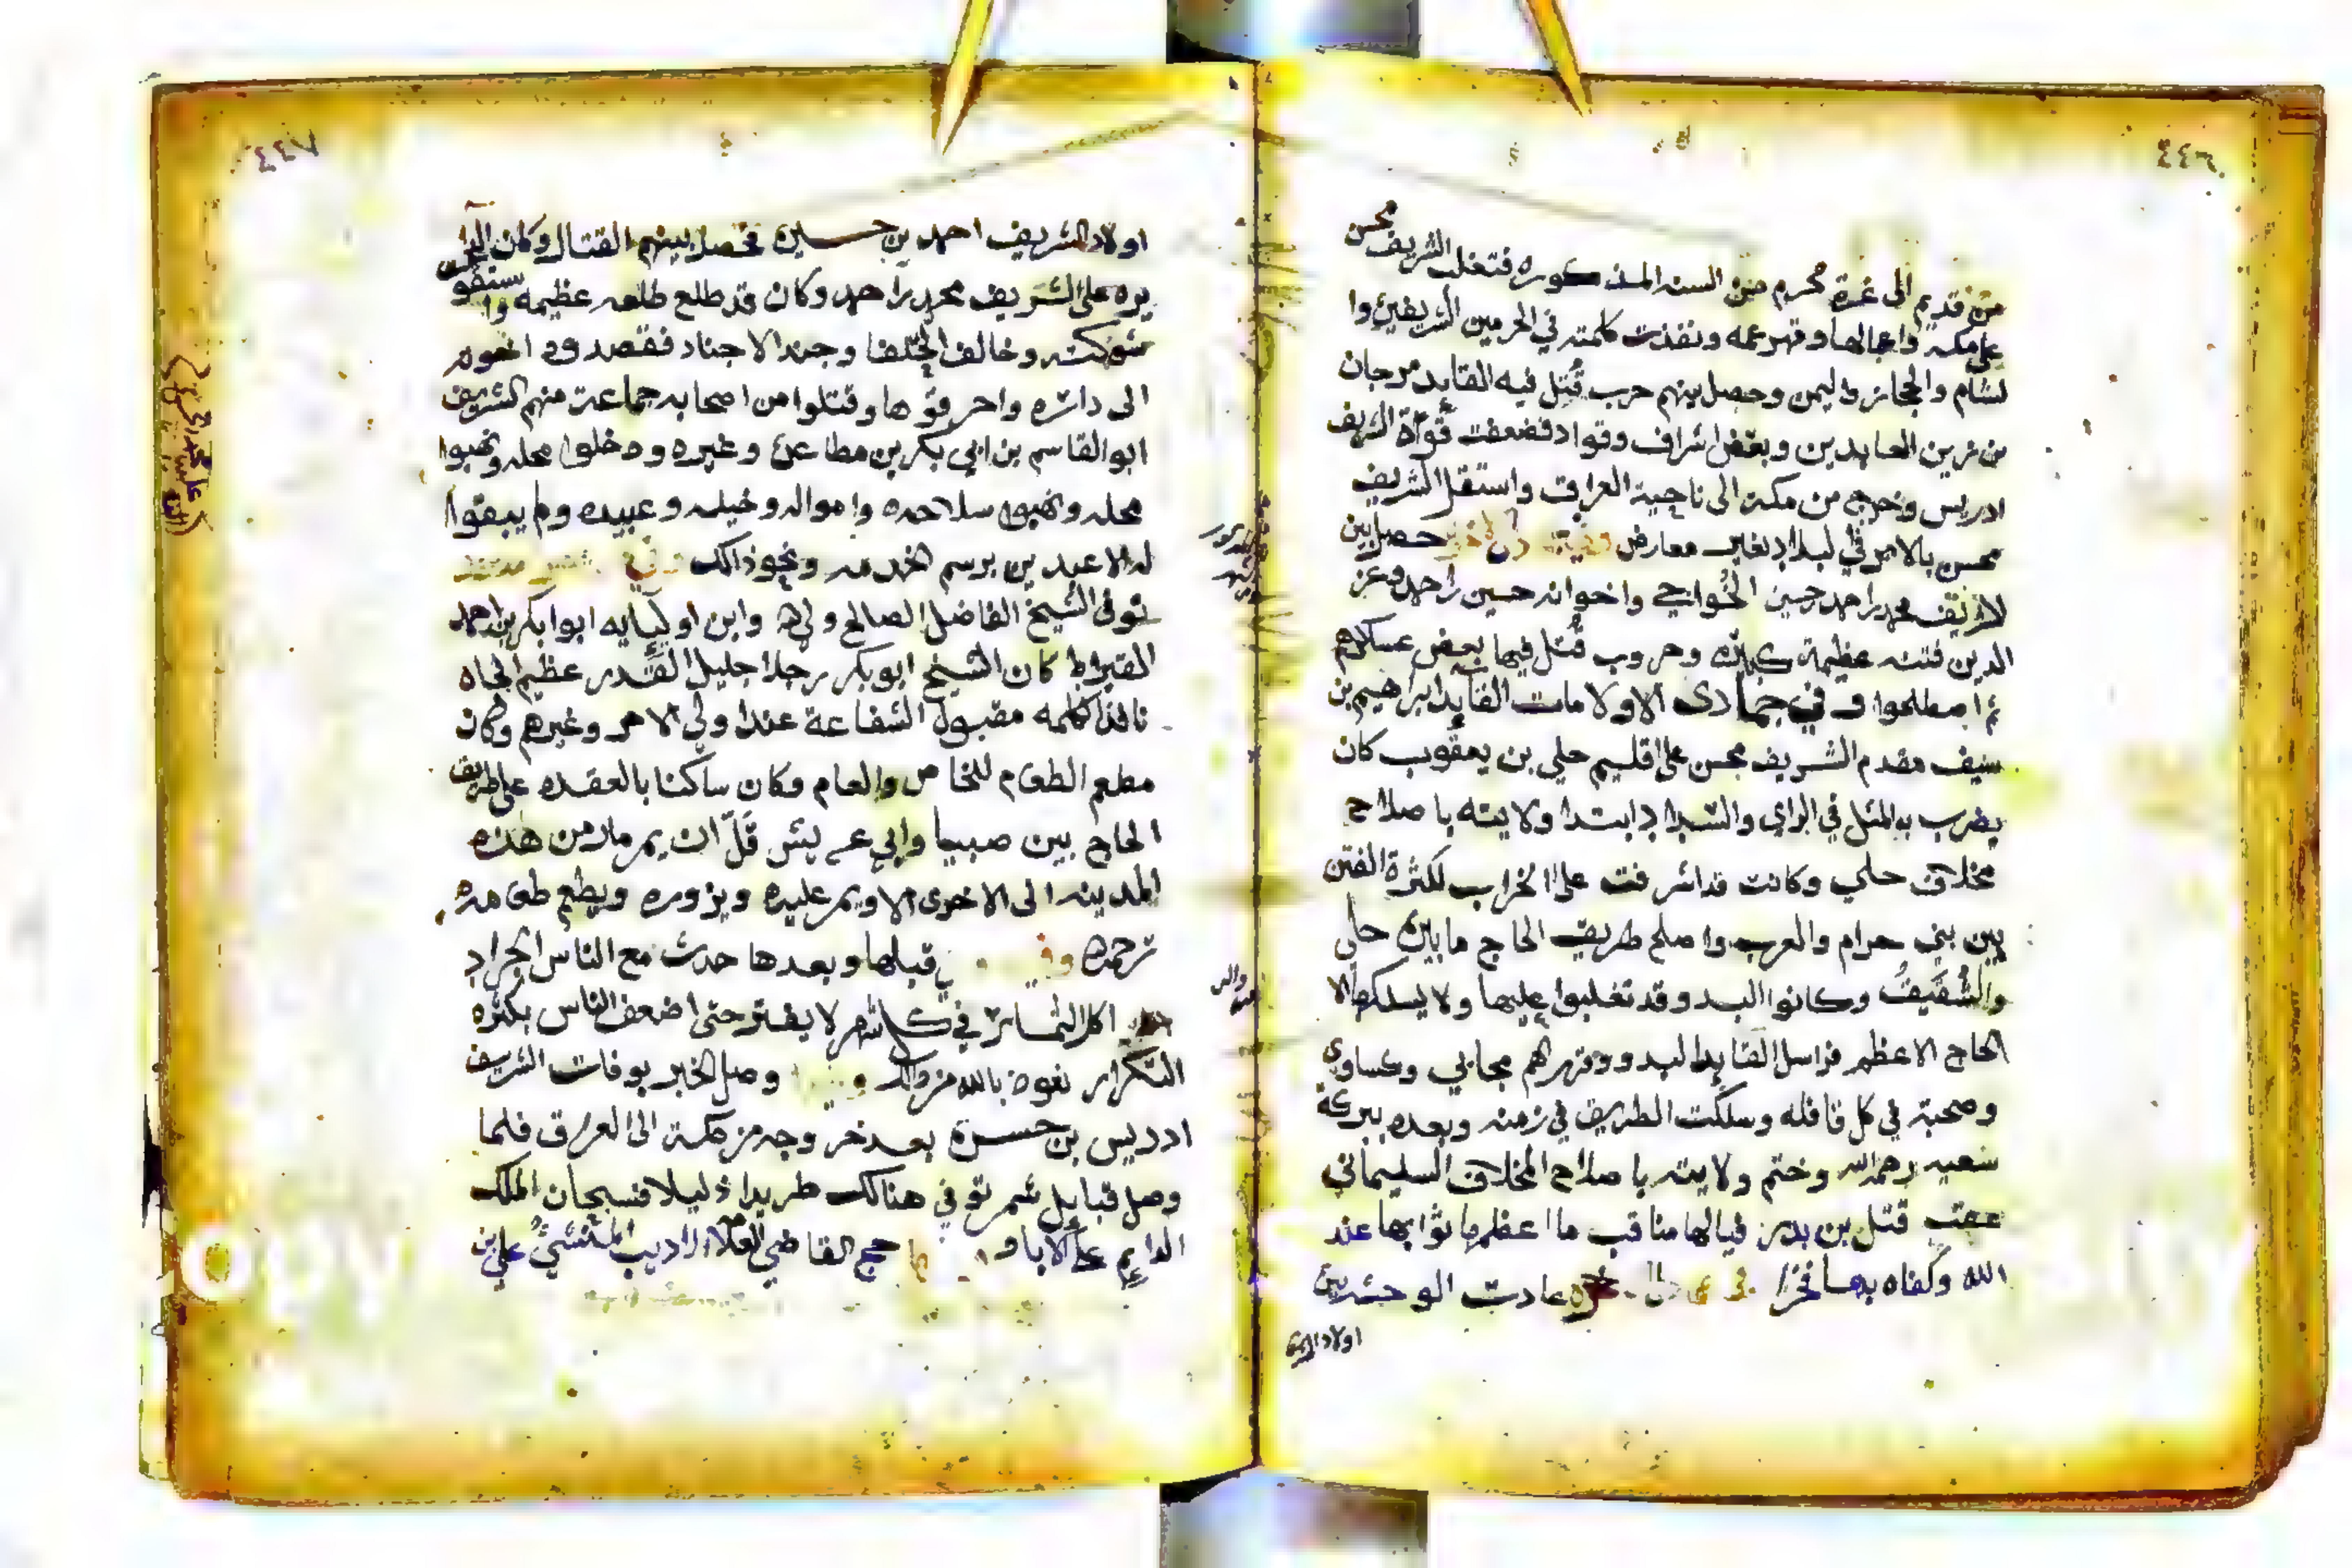 ٤٤٦
من قديم الى غرة محرم من السنه المذكوره فتغلب الشريف محسن
على مكه واعمالها وقهر عمه ونفذت كلمته في الحرمين الشريفين وا
لشام والحجاز واليمن وحصل بينهم حرب قُتل فيه القايد مرجان
بن زين العابدين وبعض اشراف وقواد فضعفت قوة الشريف
ادريس وخرج من مكة الى ناحية العراق واستقل الشريف
محسن بالامر في البلاد بغير معارض حصل بين
الشريف محمد احمد حسين الخواجي واخوانه حسين احمد وعز
الدين فتنه عظيمة كبيره وحروب قُتل فيها بعض عسكرهم
ثم اصطلحوا وفي جمادى الاولا مات القايد ابراهيم بن
سيف مقدم الشريف محسن على اقليم حلي بن يعقوب كان
يضرب به المثل في الراي والشداد ابتدا ولايته باصلاح
مخلاف حلي وكانت قد اشرفت على الخراب لكثرة الفتن
بين بني حرام والعرب واصلح طريق الحاج مابين حلي
والشقيق وكانوا البدو قد تغلبوا عليها ولا يسلكها الا
الحاج الاعظم فراسل القايد البدو وقهرهم بجابي وكساوي
وصحبته في كل قافله وسلكت الطريق في زمنه وبعده ببركة
سعيه رحمه الله وختم ولايته باصلاح المخلاف السليماني
عقب قتل بن بدر فيالها مناقب ما اعظمها ثوابها عند
الله وكفاه بها فخرا عادت الوحشه بين
اولاد الشريف
٤٤٧
اولاد الشريف احمد بن حسين فحصل بينهم القتال وكان
يره على الشريف محمد احمد وكان قد طلع طلعه عظيمه وا
شوكته وخالف الخلفا وجند الاجناد فقصدوه اخوه
الى داره واحرقوها وقتلوا من اصحابه جماعة منهم الشريف
ابو القاسم بن ابي بكر بن مطاعن وغيره ودخلوا محله ونهبوا
محله ونهبوا سلاحه وامواله وخيله وعبيده ولم يبقوا
له الا عبدين برسم الخدمه ونحو ذالك
توفى الشيخ الفاضل الصالح ولي الله وابن اوليايه ابوابكر بن احمد
القيراط كان الشيخ ابو بكر رجلا جليل القدر عظيم الجاه
نافذ الكلمه مقبول الشفاعة عند اولي الامر وغيرهم وكان
مطعم الطعام للخاص والعام وكان ساكنا بالعقده على طريق
الحاج بين صبيا وابي عريش قلّ ان يمر مار من هذه
المدينه الى الاخرى الا ويمر عليه ويزوره ويطعم طعامه
قبلها وبعدها حدث مع الناس الجراد
اكل الثمار في كل شهر لا يفتر حتى اضعف الناس بكثره
التكرار نعوذ بالله من ذالك وصل الخبر بوفات الشريف
ادريس بن حسن بعد خروجه من مكة الى العراق فلما
وصل قبايل شمر توفي هنالك طريدا ذليلا فسبحان الملك
الدايم على الاباد حج القاضي العلامه الاديب المنشي علي بن